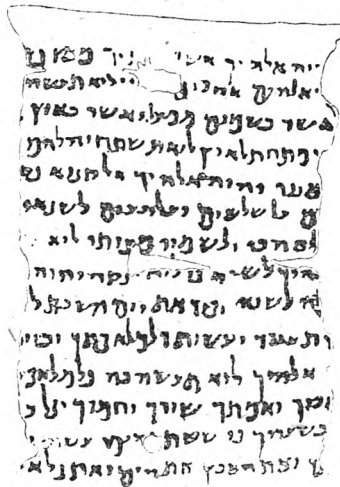 יהוה אלהיך אשר
אלהים אחרים לוא תעשה
אשר בשמים ממעל ואשר בארץ
מתחת לארץ לוא תשתחוה להם
יהוה אלהיך אל קנוא
על שלשים ועל רבעים לשנאי
ולשמרי מצותי לוא
להיך לשוא ינקה יהוה
לשוא זכור את יום השבת ל
תעבוד ועשית כל מלאכתך וביום
אלהיך לוא תעשה בה כל מלאכה
ואמתך שורך וחמרך וכל ב
בשעריך כי ששת ימים עשה י
ם ואת הארץ את הים ואת כל א